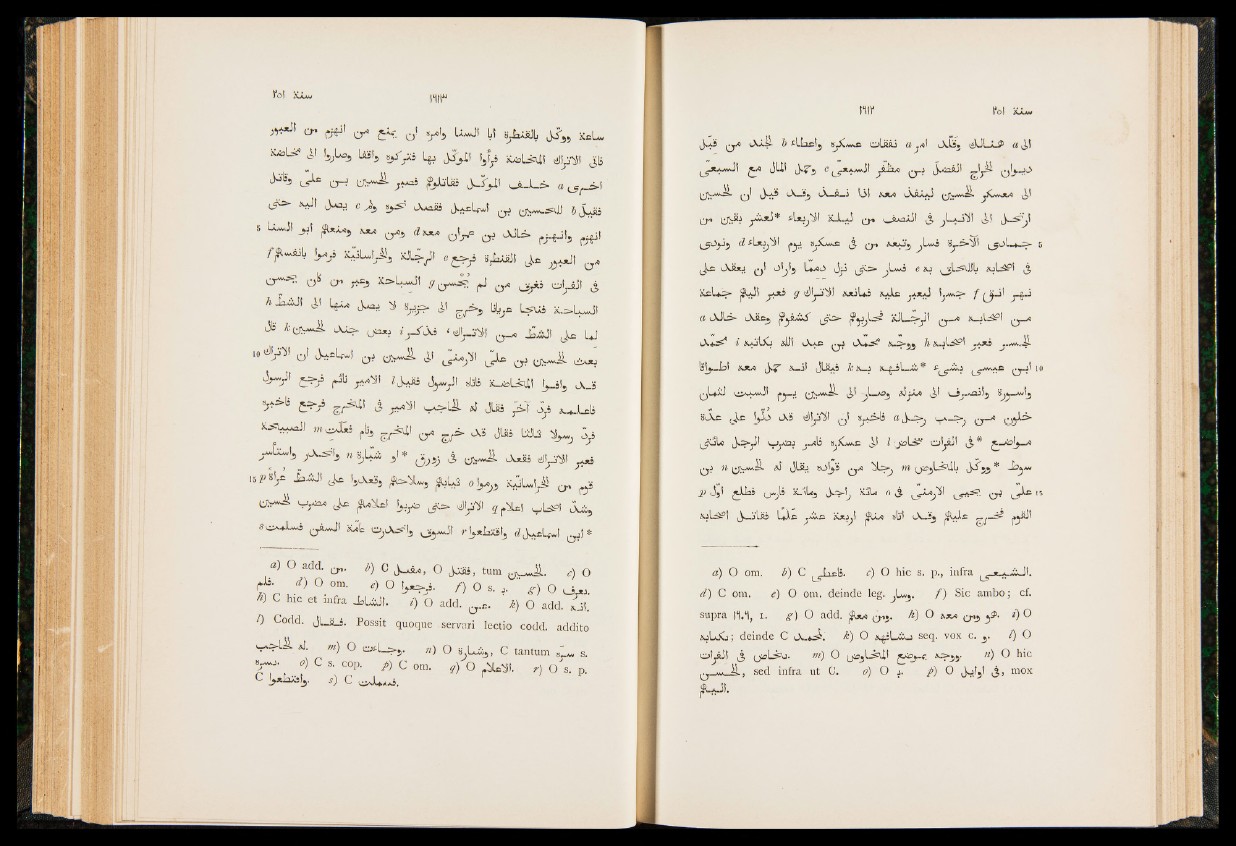 سنة ٢٥١ ١٦١٢
الى a هنالك وقلّد امر a نفقات عسكره واعطاء b الجند من قبل
ديوان الخراج الفضل بن مظفّر السبعىّ c وحمل المال مع السبعىّ
الى معسكر الحسين لينفذ معه اذا نفذ وقد قيل ان الحسين
ارتحل الى الانبار فى النصف من ليلة الاربعاء *لعشر بقين من
5 جمادى الآخرة وسار وتبعه من فى عسكره يوم الاربعاء d ونودى
فى اصحابه باللحاق به e فسار حتى نزل دممّا واراد ان يعقد على
نهر انق f جسرا ليعبر عليه فمانعه الاتراك g فعبر اليهم جماعة
من اصحابه من الرجّالة فحاربوهم حتى كشفوهم وعقد خالد a
الجسر فعبر اصحابه h ووجّه محمّد بن عبد الله بكتابه i محمّد
10 ابن عيسى بشىء *شافهه به k فيقال انه حمل معه اطواقا
واسورة وانصرف الى منزله وصار الى الحسين يوم السبت لثمان
خلون من رجب رجل a فاخبره ان الاتراك قد دُلّوا على عدّة
مواضع *فى الفرات l تخاض الى عسكره فامر بضرب الرجل مائتى
سوط *ووكّل بالمخاوض m رجلا من قوّاده يقال له الحسين n بن
15 علىّ بن يحيى الارمنىّ فى o مائة راجل ومائة فارس فطلع اوّل p
القوم فخرج عليهم وقد اتاه منهم اربعة عشر علمًا فقاتل اصحابه
a) O om. b) C فاعطى. c) O hic s. p., infra الشيعى.
d) C om. e) O om. deinde leg. وسار. f) Sic ambo; cf.
supra ١٦٠٦, 1. g) O add. ومن معهم. h) O هو ومن معه. i) O
بكتابه; deinde C لمحمد. k) O seq. vox c. و. l) O
تخاض فى الفرات. m) O ووجه بموضع المخاوض. n) O hic
الحسن, sed infra ut C. o) O ب. p) O فى اوائل, mox
اليهم.
سنة ٢٥١ ١٦١٣
ساعة ووكّل بالقنطرة ابا السنا وامره ان يمنع من انهزم من العبور
فاتى الاتراك المخاضة فرأوا الموكّل بها فتركوه واقفا وصاروا الى مخاضة
اخرى a خلف الموكّل فقاتلوهم فصبر الحسين بن علىّ وقاتل
فقيل b للحسين بن اسماعيل فقصد نحوه ولم c يصل اليه حتى
5 انهزم وانهزم خالد بن عمران معه d ومن معه ومنعهم ابو السنا
من العبور على القنطرة فرجع e الرجّالة والخراسانيّة فرموا بانفسهم f
فى الفرات فغرق من لم يحسن g السباحة وعبر من كان يحسن
السباحة فنجا عريانا وخرج الى جزيرة لا يصل منها الى الشطّ h
لما على الشطّ من الاتراك، فذكر i بعض جند الحسين k قال
10 بعث الحسين بن علىّ الارمنىّ الى الحسين بن اسماعيل ان الاتراك
قد وافوا المخاضة فاتاه الرسول فقيل l الامير نائم فرجع الرسول
فاعلمه فردّ آخر فقال له الحاجب الامير فى المخرج فرجع فاخبره
فردّ رسولا ثالثا فقال قد خرج من المخرج ونام فعلت m الصيحة
فعبر الاتراك فقعد الحسين فى زورق *او شبّارة n وانحدر واستأسر
15 قوم من الخراسانيّة ورموا o ثيابهم وسلاحهم وقعدوا على الشطّ عراة p
وشدّ اصحاب اعلام q الاتراك حتى ضربوا اعلامهم على مضرب الحسين
*ابن اسماعيل d واقتطعوا r السوق وانحدرت عامّة السفن فسلمت s
a) O add. من. b) C فقيل, O فقتل, tum الحسين. c) O
فلم. d) O om. e) O فرجعوا. f) O s. ب. g) O يعرف.
h) C hic et infra الشاط. i) O add. عن. k) O add. انه.
l) Codd. فقال. Possit quoque servari lectio codd. addito
له الحاجب. m) O وارتفعت. n) O وشبارة, C tantum s.
o) C s. cop. p) C om. q) O الاعلام. r) O s. p.
C واقتطعوا. s) C